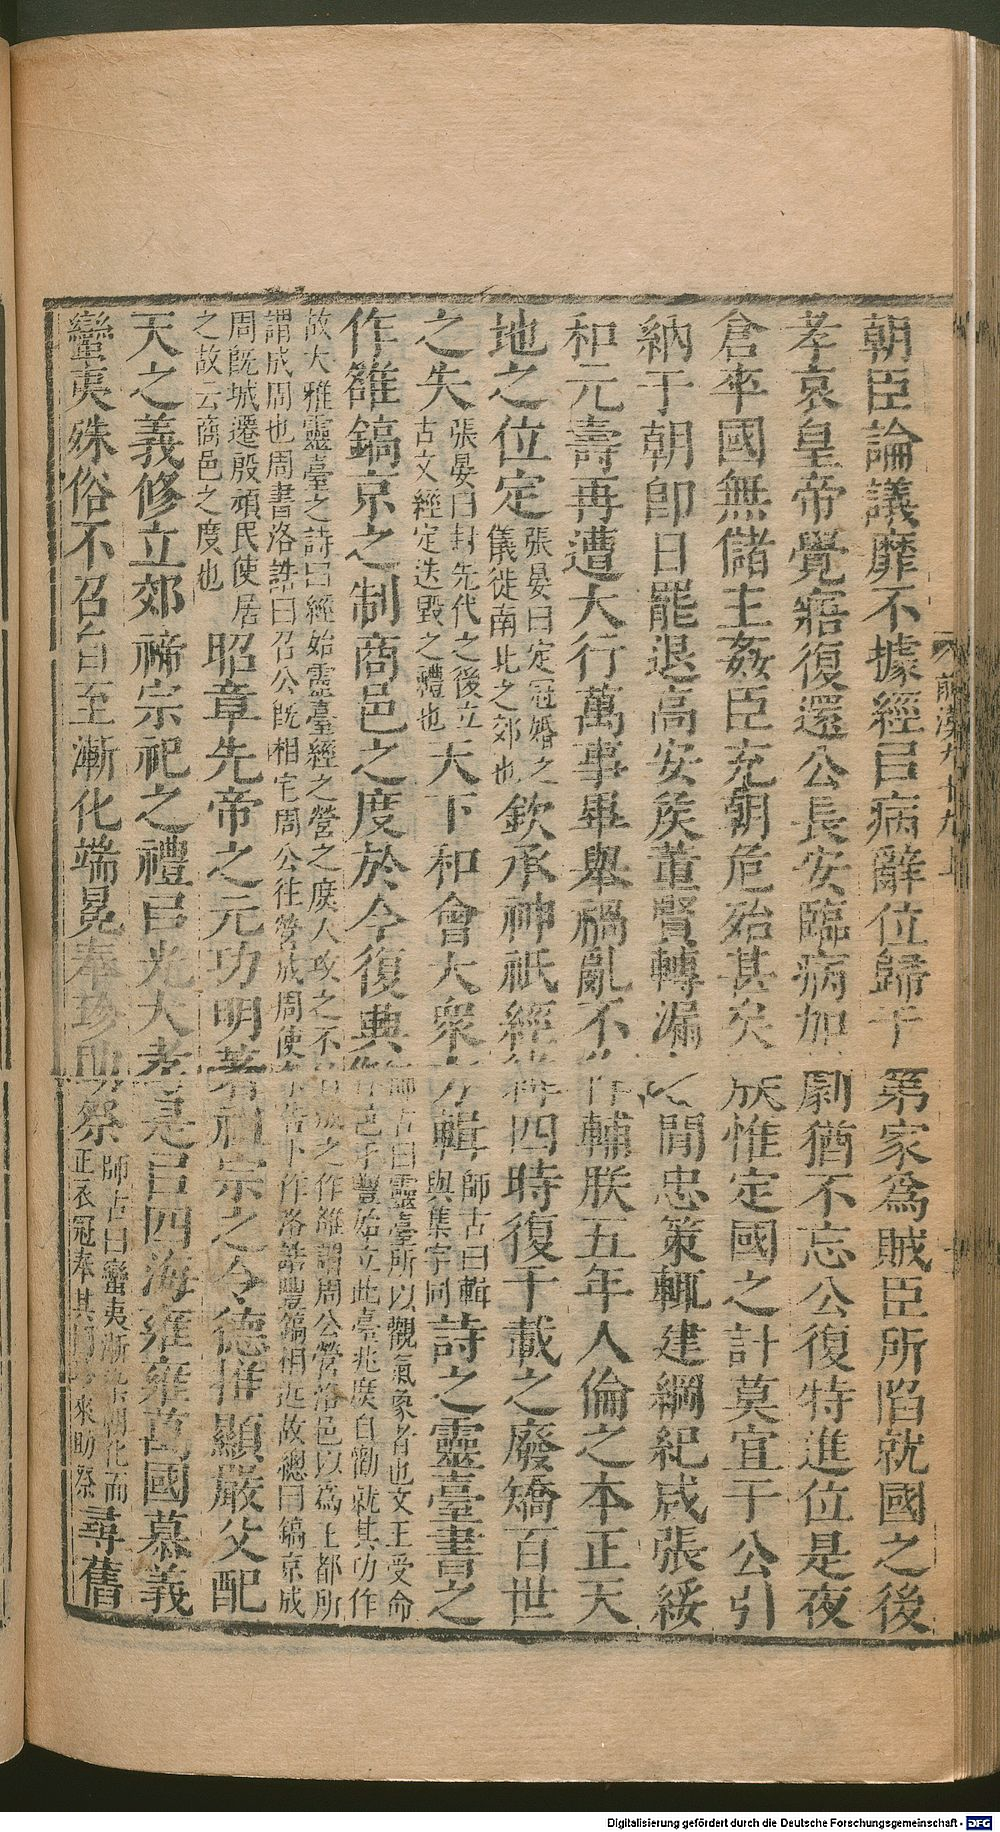 朝臣論議靡不據經㠯病辭位歸于第家爲賊臣所陷就國之後
孝哀皇帝覺寤復還公長安臨病加劇猶不忘公復特進位是夜
倉卒國無儲主姦臣充朝危殆甚矣朕惟定國之計莫宜于公引
納于朝卽日罷退高安矦董賢轉漏之閒忠策輒建綱紀咸張綏
和元壽再遭大行萬事畢舉禍亂不作輔朕五年人倫之本正天
地之位定張晏曰定冠婚之儀徙南北之郊也欽承神祇經緯四時復千載之廢矯百世
之失張晏曰封先代之後立古文經定迭毀之禮也天下和會大衆方輯師古曰輯與集字同詩之靈臺書之
作雒鎬京之制商邑之度於今復興師古曰靈臺所以觀氣象者也文王受命作邑于豐始立此臺兆庶自勸就其功作
故大雅靈臺之詩曰經始靈臺經之營之庶人攻之不日成之作雒謂周公營洛邑以爲王都所
謂成周也周書洛誥曰召公旣相宅周公往營成周使來告卜作洛誥豐鎬相近故總曰鎬京成
周旣城遷殷頑民使居之故云商邑之度也昭章先帝之元功明著祖宗之令德推顯嚴父配
天之義修立郊禘宗祀之禮㠯光大孝是㠯四海雍雍萬國慕義
蠻夷殊俗不召自至漸化端冕奉珍助祭師古曰蠻夷漸染朝化而正衣冠奉其珍來助祭尋舊
前漢九十九上
Digitalisierung gefördert durch die Deutsche Forschungsgemeinschaft - DFG